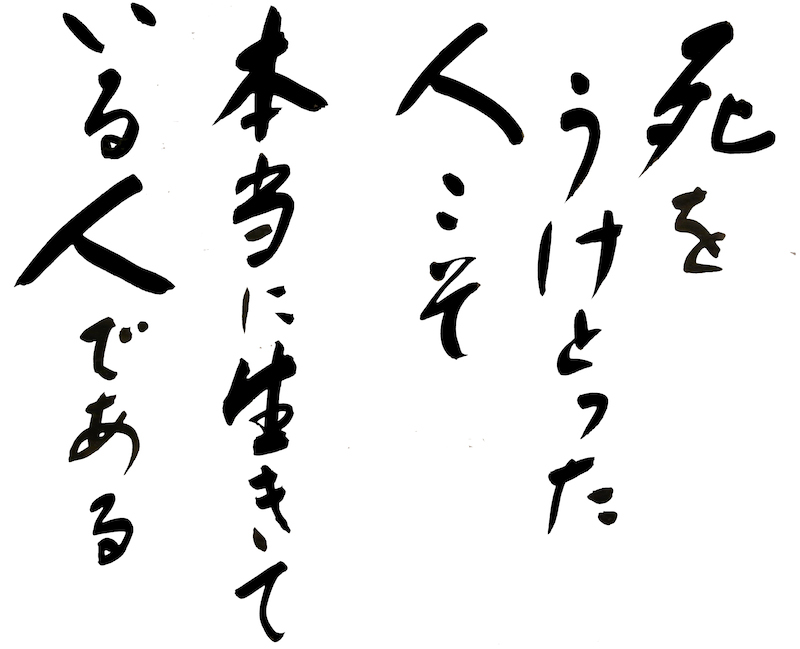 死を
うけとった
人こそ
本当に生きて
いる人である